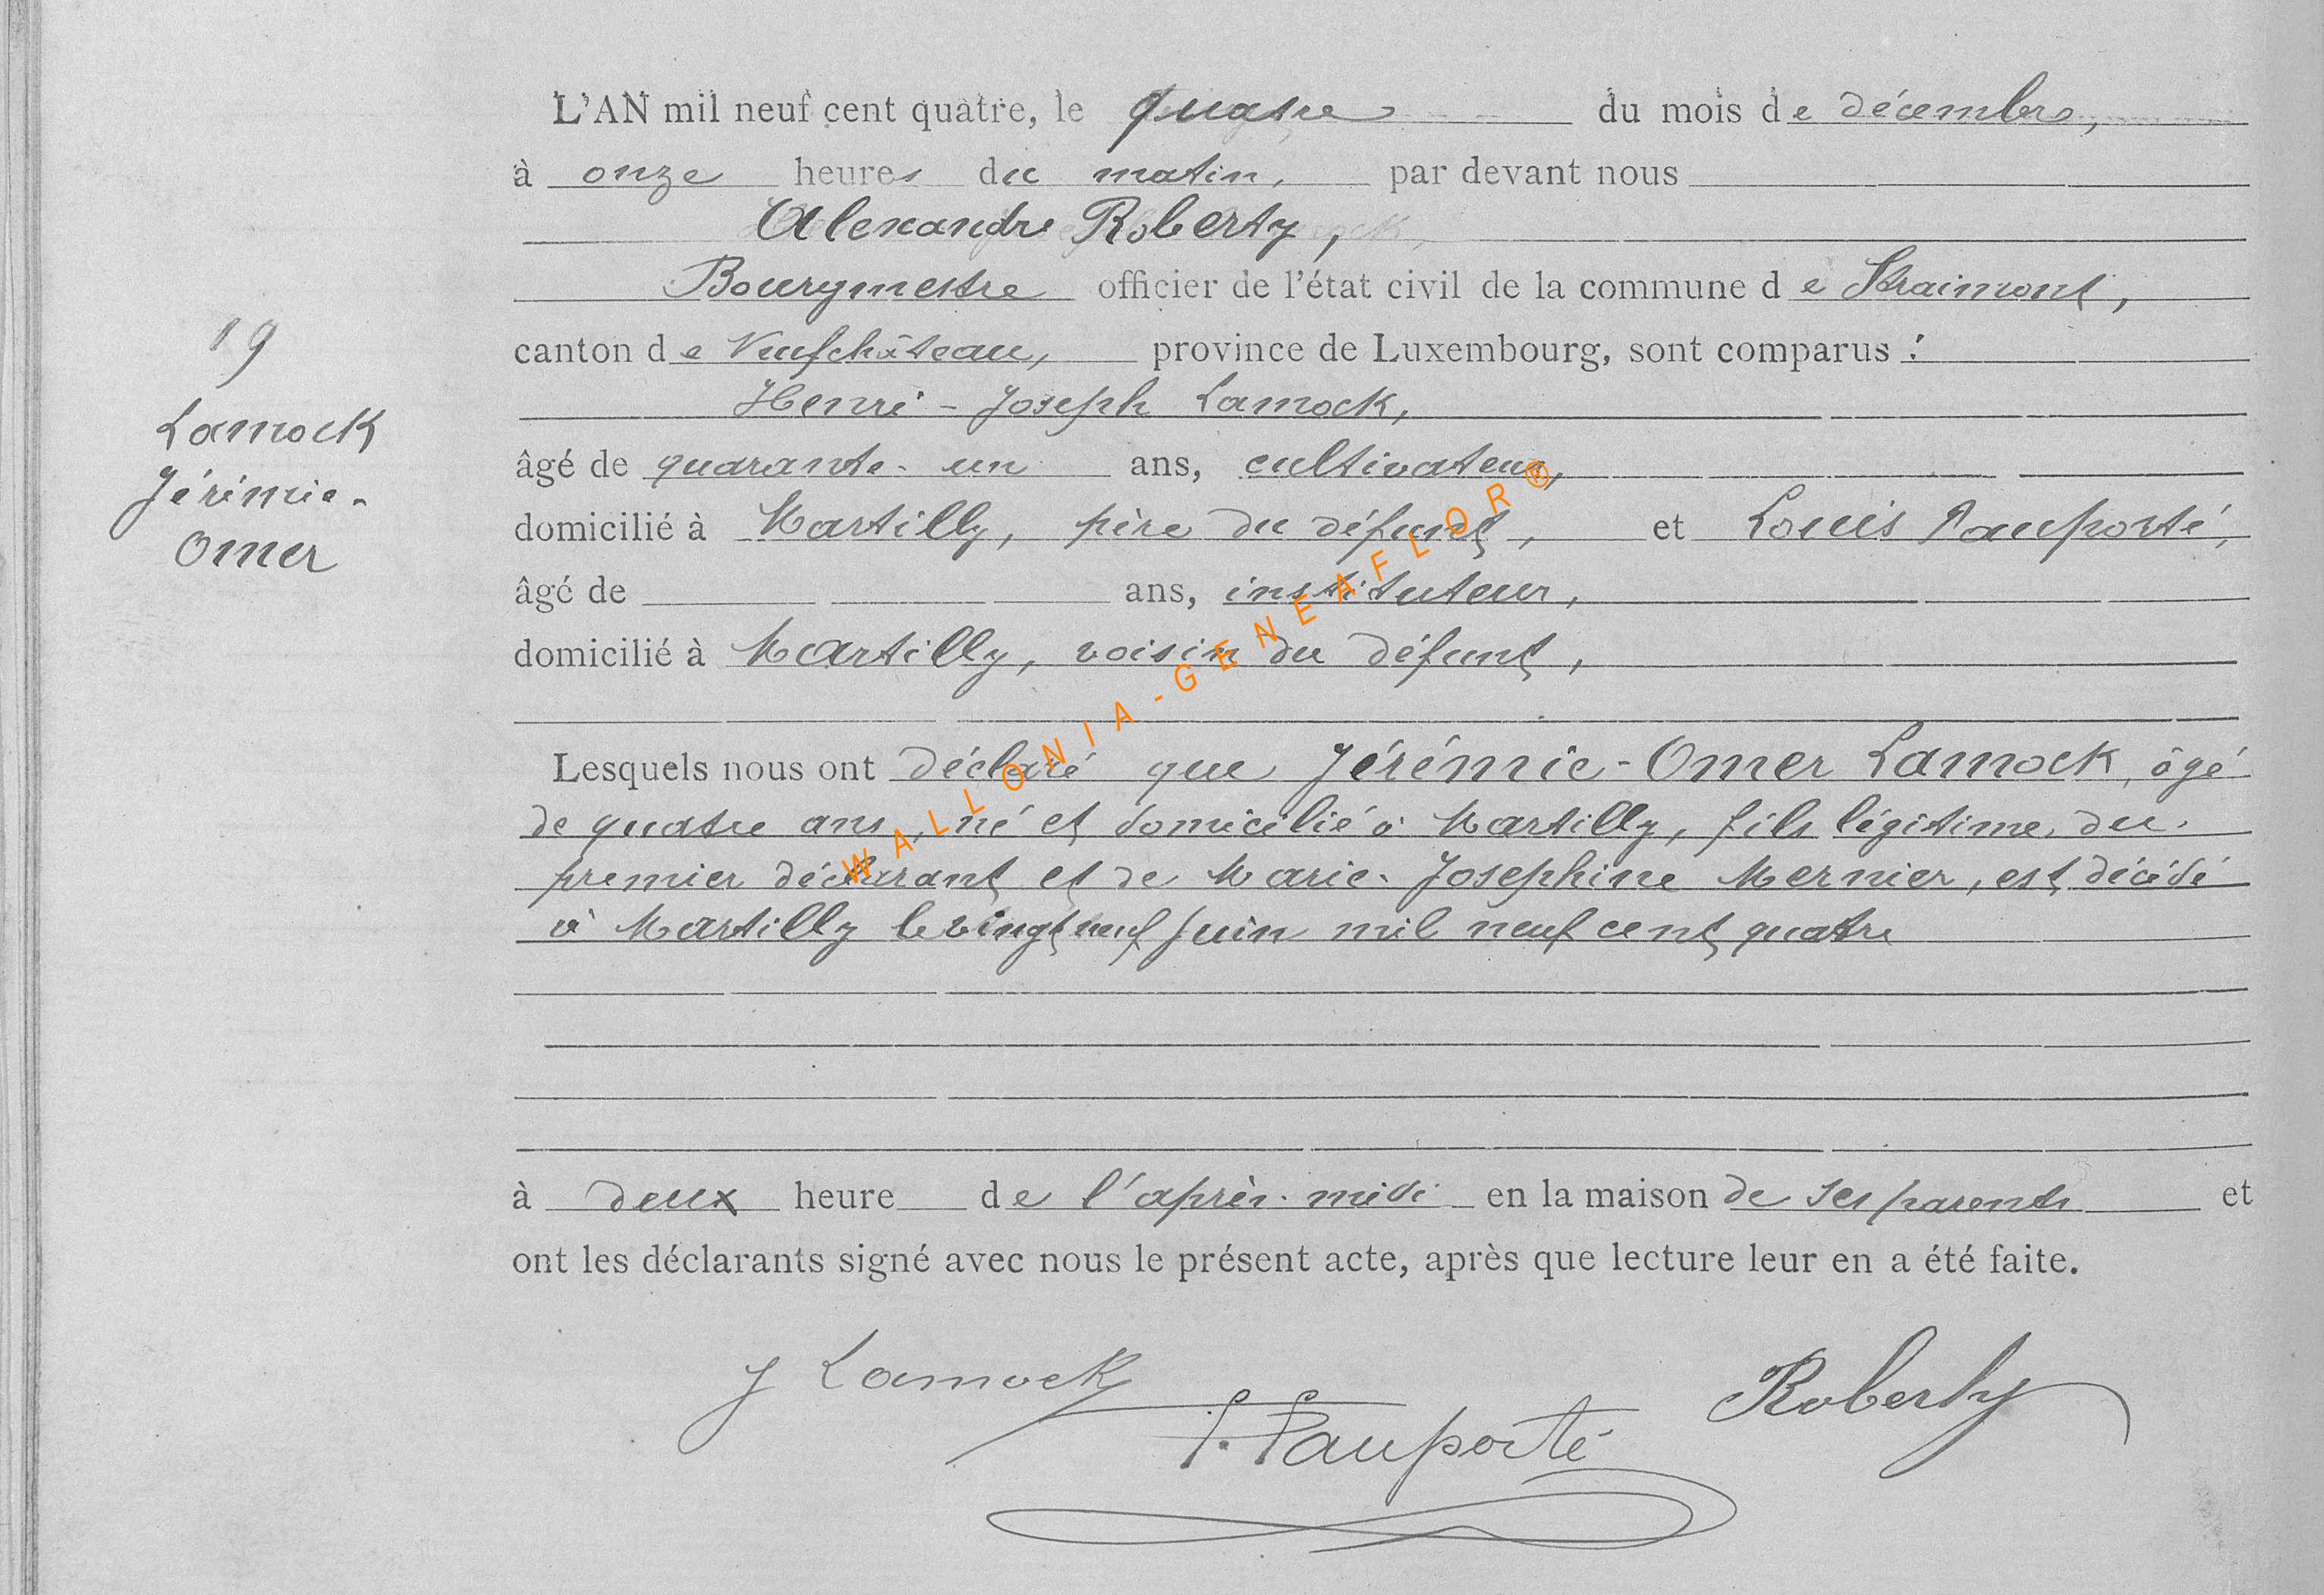 L'AN mil neuf cent quatre, le quatre du mois de décembre,
à onze heures du matin, par devant nous
Alexandre Roberty,
Bourgmestre officier de l'état civil de la commune de Straimont,
canton de Neufchâteau, province de Luxembourg, sont comparus :
Henri - Joseph Lamock,
âgé de quarante-un ans, cultivateur,
domicilié à Martilly, père du défunt, et Louis Pauporté,
âgé de ans, instituteur,
domicilié à Martilly, voisin du défunt,
19
Lamock
Jérémie-
Omer
Lesquels nous ont déclaré que Jérémie-Omer Lamock, âgé
de quatre ans, né et domicilié à Martilly, fils légitime du
premier déclarant et de Marie-Josephine Mernier, est décédé
à Martilly le vingt neuf juin mil neuf cent quatre
à deux heure de l'après-midi en la maison de ses parents et
ont les déclarants signé avec nous le présent acte, après que lecture leur en a été faite.
J Lamock
Pauporté
Roberty
WALLONIA-GENEAFLOR®